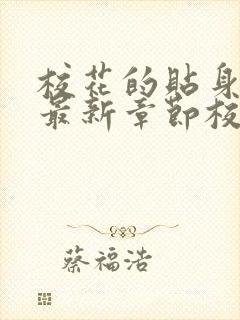 校花的貼身
最新章節校
蔡福浩